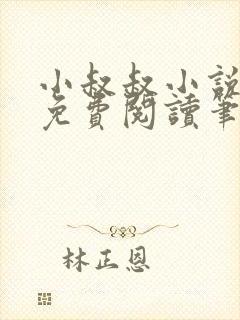 小叔叔小說
免費閱讀筆
林正恩